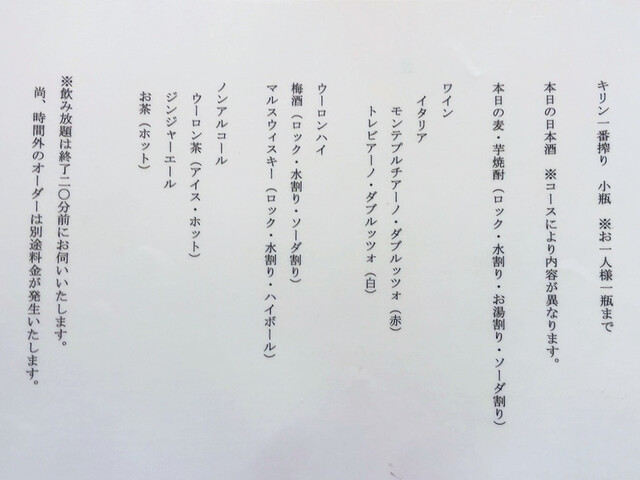 キリン一番搾り　小瓶　※お一人様一瓶まで
本日の日本酒　※コースにより内容が異なります。
本日の麦・芋焼酎（ロック・水割り・お湯割り・ソーダ割り）
ワイン
イタリア
モンテプルチアーノ・ダブルッツォ（赤）
トレビアーノ・ダブルッツォ（白）
ウーロンハイ
梅酒（ロック・水割り・ソーダ割り）
マルスウィスキー（ロック・水割り・ハイボール）
ノンアルコール
ウーロン茶（アイス・ホット）
ジンジャーエール
お茶（ホット）
※飲み放題は終了二〇分前にお伺いいたします。
尚、時間外のオーダーは別途料金が発生いたします。